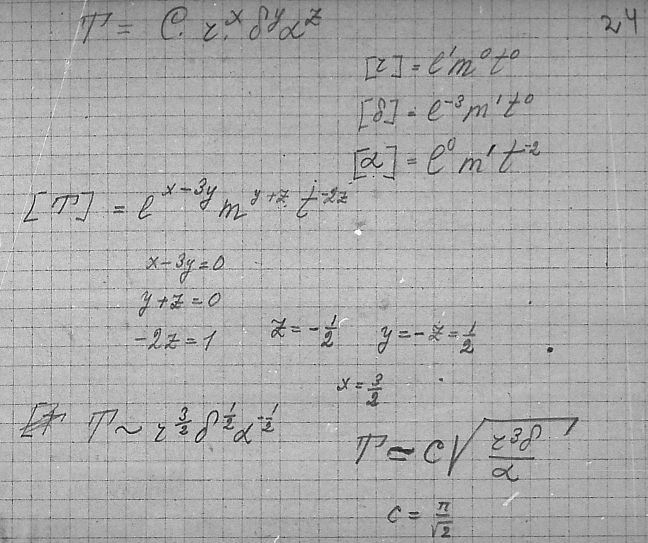 T = C. r.ˣ δʸ αᶻ 24
[r] = l¹m⁰t⁰
[δ] = l⁻³m¹t⁰
[α] = l⁰m¹t⁻²
[T] = l^{x-3y} m^{y+z} t^{-2z}
x-3y=0
y+z=0
-2z=1 z=-1/2 y=-z=1/2
x=3/2
T ~ r^{3/2} δ^{1/2} α^{-1/2}
T = C√(r³δ/α)
c = π/√2